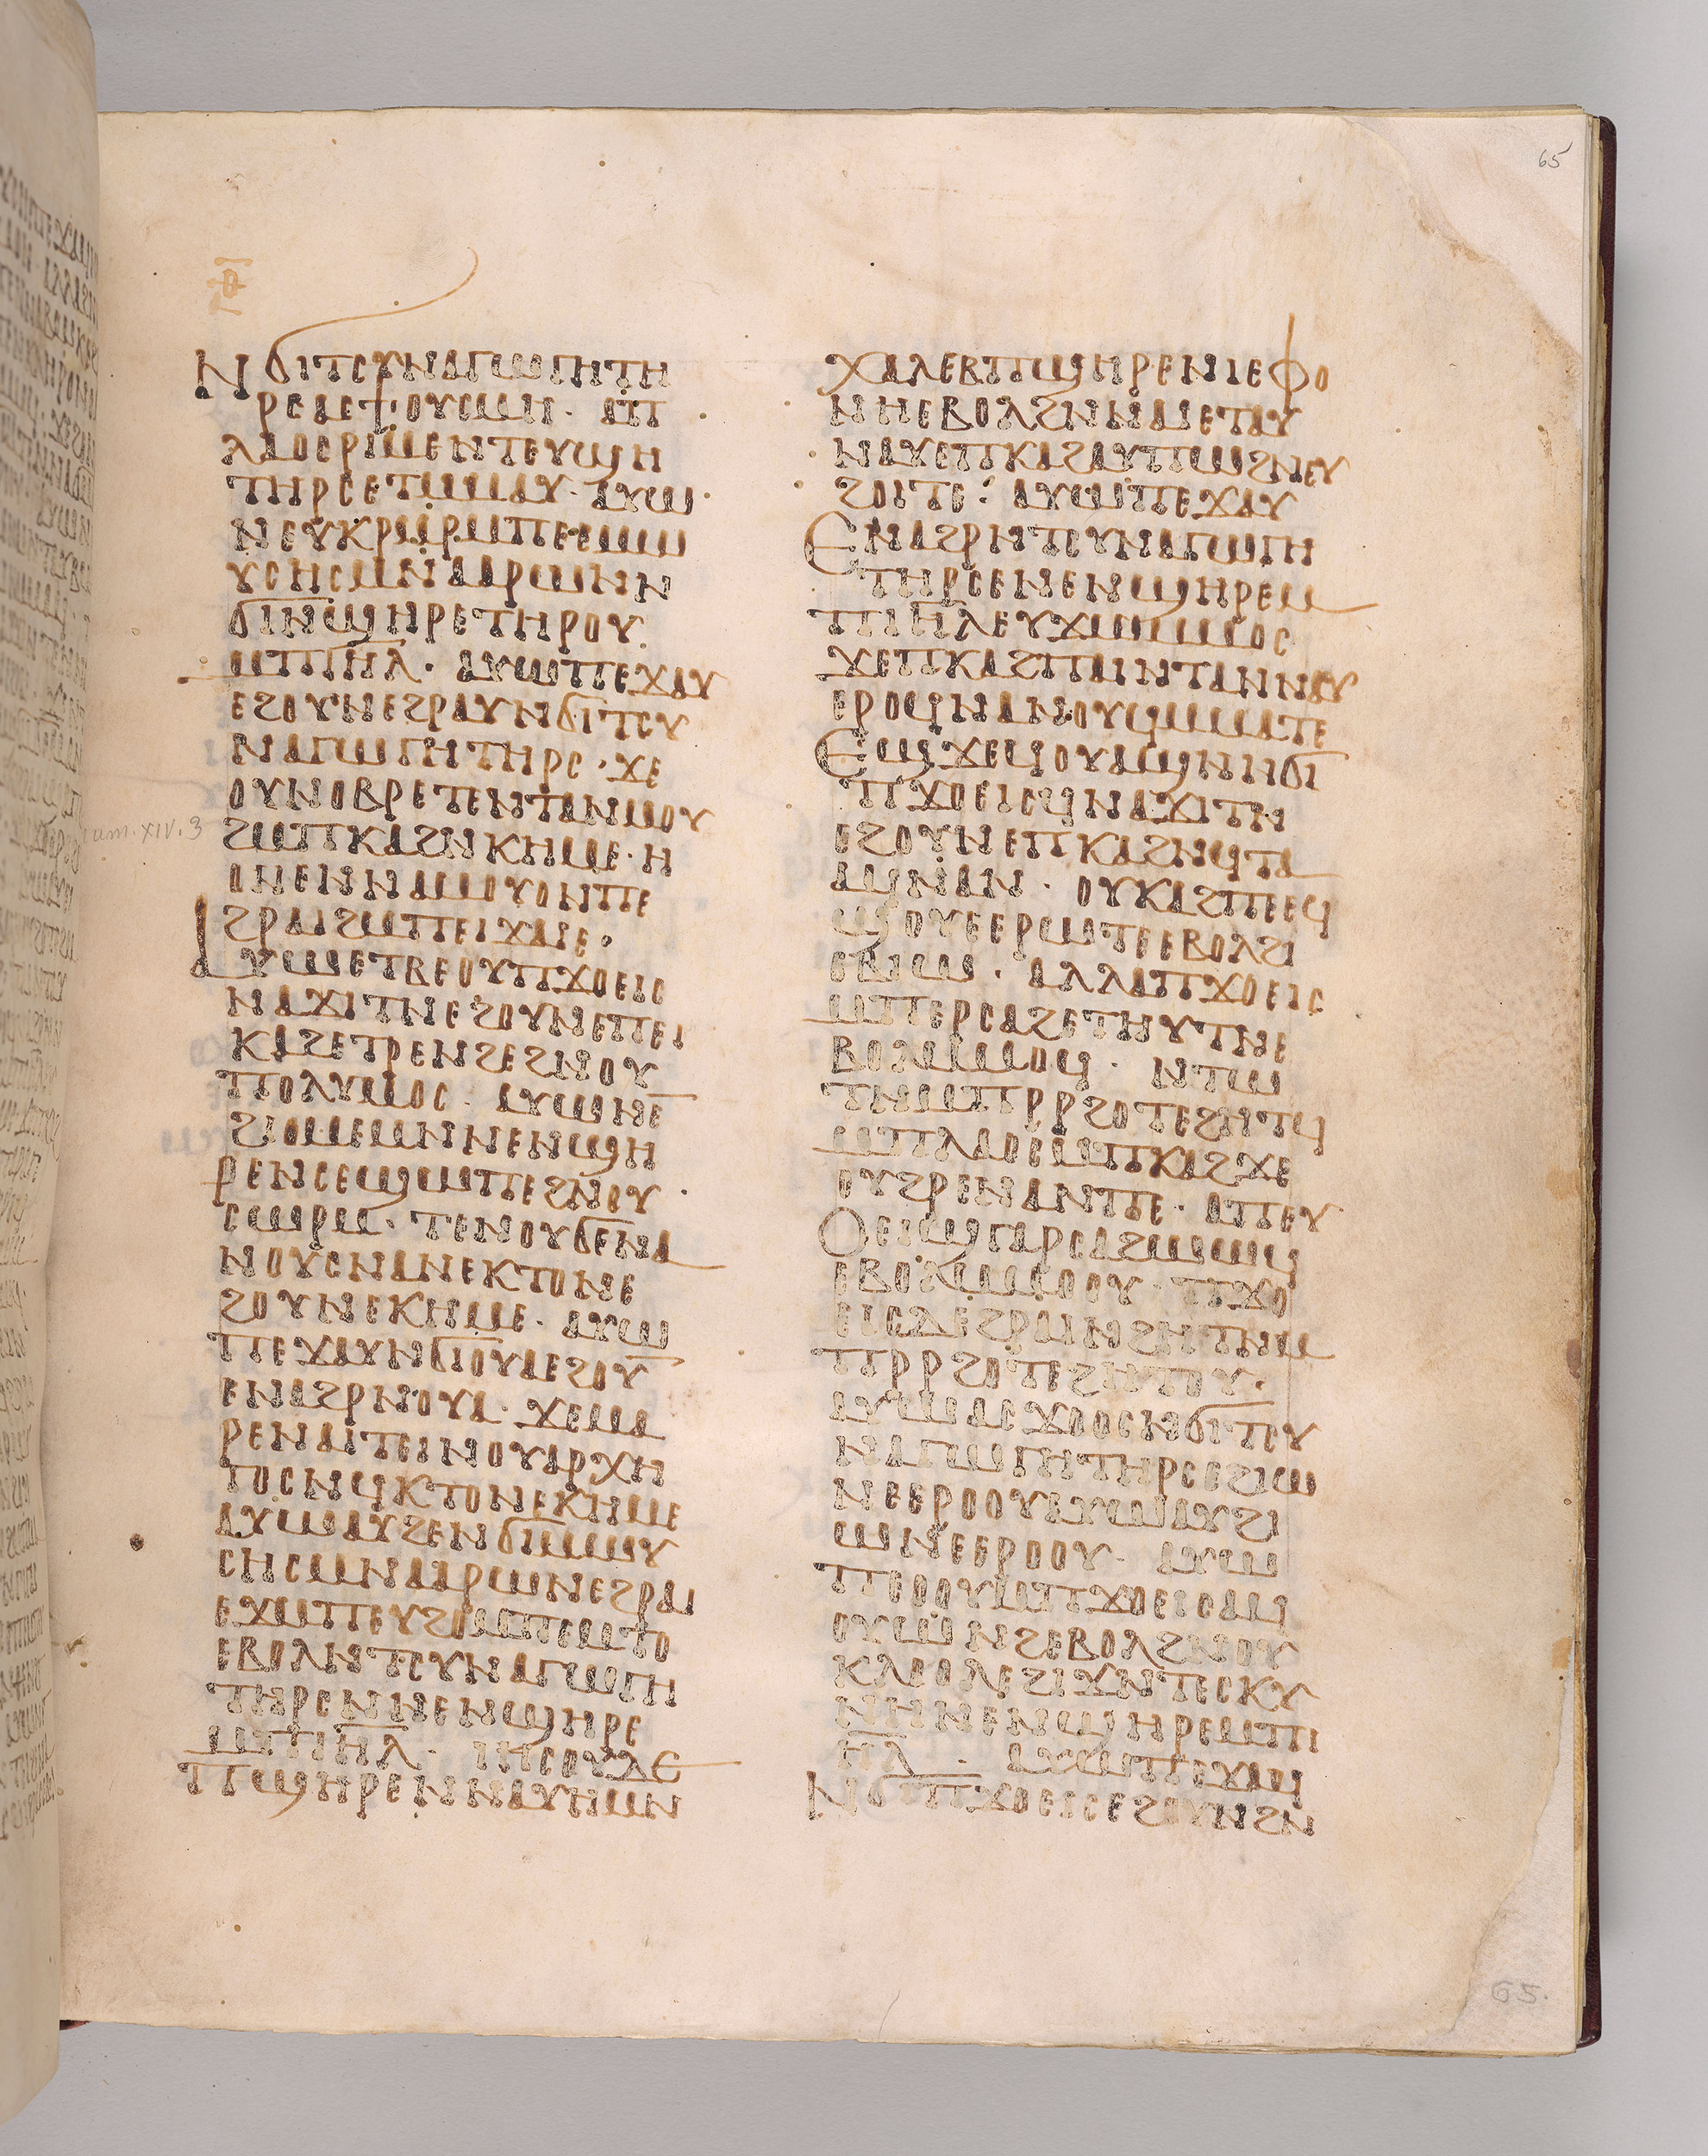 65
ⲛϭⲓⲧⲥⲩⲛⲁⲅⲱⲅⲏⲧⲏ
ⲣⲥⲁⲥϯⲟⲩⲥⲙⲏ· ⲁⲡ
ⲗⲁⲟⲥⲣⲓⲙⲉⲛⲧⲉⲩϣⲏ
ⲧⲏⲣⲥⲉⲧⲙⲙⲁⲩ· ⲁⲩⲱ
ⲛⲉⲩⲕⲣⲙⲣⲙⲡⲉⲉⲙⲱ
ⲩⲥⲏⲥⲙⲛⲁⲁⲣⲱⲛⲛ
ϭⲓⲛϣⲏⲣⲉⲧⲏⲣⲟⲩ
ⲙⲡⲓ̅ⲏ̅ⲗ̅· ⲁⲩⲱⲡⲉϫⲁⲩ
ⲉϩⲟⲩⲛⲉϩⲣⲁⲩⲛϭⲓⲧⲥⲩ
ⲛⲁⲅⲱⲅⲏⲧⲏⲣⲥ· ϫⲉ
ⲟⲩⲛⲟⲃⲣⲉⲧⲉⲛⲧⲁⲛⲙⲟⲩ
ϩⲙⲡⲕⲁϩⲛⲕⲏⲙⲉ· ⲏ
ⲉⲛⲉⲛⲛⲁⲙⲟⲩⲟⲛⲡⲉ
ϩⲣⲁⲓϩⲙⲡⲉⲓϫⲁⲓⲉ·
ⲁⲩⲱⲉⲧⲃⲉⲟⲩⲡϫⲟⲉⲓⲥ
ⲛⲁϫⲓⲧⲛⲉϩⲟⲩⲛⲉⲡⲉⲓ
ⲕⲁϩⲉⲧⲣⲉⲛϩⲉϩⲛⲟⲩ
ⲡⲟⲗⲩⲙⲟⲥ· ⲁⲩⲱⲛⲉ
ϩⲓⲟⲙⲉⲙⲛⲛⲉⲛϣⲏ
ⲣⲉⲛⲥⲉϣⲱⲡⲉϩⲛⲟⲩ
ⲥⲱⲣⲙ· ⲧⲉⲛⲟⲩϭⲉⲛⲁ
ⲛⲟⲩⲥⲛⲁⲛⲉⲕⲧⲟⲛⲉ
ϩⲟⲩⲛⲉⲕⲏⲙⲉ· ⲁⲩⲱ
ⲡⲉϫⲁⲩⲛϭⲓⲟⲩⲁⲉϩⲟⲩ
ⲉⲛⲁϩⲣⲛⲟⲩⲁ· ϫⲉⲙⲁ
ⲣⲉⲛⲁⲓⲧⲉⲓⲛⲟⲩⲁⲣⲭⲏ
ⲅⲟⲥⲛϥⲕⲧⲟⲛⲉⲕⲏⲙⲉ
ⲁⲩⲱⲁⲩϩⲉⲛϭⲓⲙⲱⲩ
ⲥⲏⲥⲙⲛⲁⲁⲣⲱⲛⲉϩⲣⲁⲓ
ⲉϫⲙⲡⲉⲩϩⲟⲙⲡⲉⲙⲧⲟ
ⲉⲃⲟⲗⲛⲧⲥⲩⲛⲁⲅⲱⲅⲏ
ⲧⲏⲣⲥⲛⲛⲉⲛϣⲏⲣⲉ
ⲙⲡⲓ̅ⲏ̅ⲗ̅· ⲓⲏⲥⲟⲩⲇⲉ
ⲡϣⲏⲣⲉⲛⲛⲁⲩⲏⲙⲛ
ⲭⲁⲗⲉⲃⲡϣⲏⲣⲉⲛⲓⲉⲫⲟ
ⲛⲏⲉⲃⲟⲗϩⲛⲛⲁⲓⲉⲧⲁⲩ
ⲛⲁⲩⲉⲡⲕⲁϩⲁⲩⲡⲱϩⲛⲉⲩ
ϩⲟⲓⲧⲉ: ⲁⲩⲱⲡⲉϫⲁⲩ
ⲉⲛⲁϩⲣⲛⲧⲥⲩⲛⲁⲅⲱⲅⲏ
ⲧⲏⲣⲥⲉⲛⲉⲛϣⲏⲣⲉⲙ
ⲡⲓ̅ⲏ̅ⲗ̅ⲉⲩϫⲱⲙⲙⲟⲥ
ϫⲉⲡⲕⲁϩⲡⲁⲓⲛⲧⲁⲛⲛⲁⲩ
ⲉⲣⲟϥⲛⲁⲛⲟⲩϥⲙⲙⲁⲧⲉ
ⲉϣϫⲉϥⲟⲩⲁϣⲛⲛϭⲓ
ⲡϫⲟⲉⲓⲥϥⲛⲁϫⲓⲧⲛ
ⲉϩⲟⲩⲛⲉⲡⲕⲁϩⲛϥⲧⲁ
ⲁϥⲛⲁⲛ· ⲟⲩⲕⲁϩⲡⲉⲉϥ
ϣⲟⲩⲉⲉⲣⲱⲧⲉⲉⲃⲟⲗϩⲓ
ⲉⲃⲓⲱ· ⲁⲗⲗⲁⲡϫⲟⲉⲓⲥ
ⲙⲡⲉⲣⲥⲁϩⲉⲧⲏⲩⲧⲛⲉ
ⲃⲟⲗⲙⲙⲟϥ· ⲛⲧⲱ
ⲧⲛⲙⲡⲣⲣϩⲟⲧⲉϩⲏⲧϥ
ⲙⲡⲗⲁⲟⲥⲙⲡⲕⲁϩϫⲉ
ⲟⲩϩⲣⲉⲛⲁⲛⲡⲉ· ⲁⲡⲉⲩ
ⲟⲉⲓϣⲅⲁⲣⲥⲁϩⲱⲱϥ
ⲉⲃⲟⲗⲙⲙⲟⲟⲩ· ⲡϫⲟ
ⲉⲓⲥⲇⲉϩⲣⲁⲓⲛϩⲏⲧⲛⲙ
ⲡⲣⲣϩⲟⲧⲉϩⲏⲧⲟⲩ·
ⲁⲩⲱⲁⲥϫⲟⲟⲥⲛϭⲓⲧⲥⲩ
ⲛⲁⲅⲱⲅⲏⲧⲏⲣⲥⲉϩⲓⲱ
ⲛⲉⲉⲣⲟⲟⲩⲁⲩⲱⲁⲩϩⲓ
ⲱⲛⲉⲉⲣⲟⲟⲩ· ⲁⲩⲱ
ⲡⲉⲟⲟⲩⲙⲡϫⲟⲉⲓⲥⲁϥ
ⲟⲩⲱⲛϩⲉⲃⲟⲗϩⲛⲟⲩ
ⲕⲗⲟⲟⲗⲉϩⲓϫⲛⲧⲉⲥⲕⲩ
ⲛⲏⲛⲉⲛϣⲏⲣⲉⲙⲡⲓ̅
ⲏ̅ⲗ̅· ⲁⲩⲱⲡⲉϫⲁϥ
ⲛϭⲓⲡϫⲟⲉⲓⲥⲉϩⲟⲩⲛϩⲛ
65.